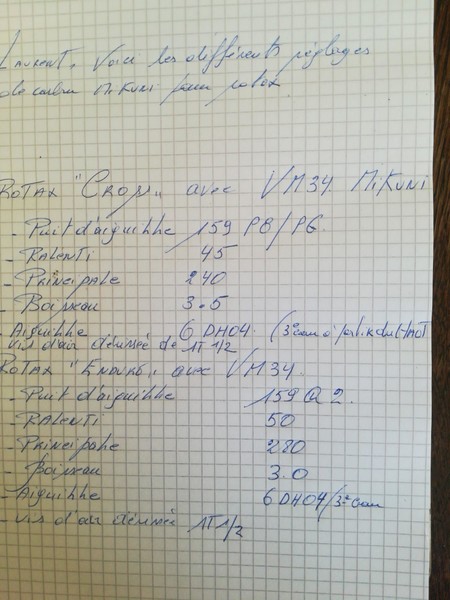 Laurent. Voici les différents réglages
de carbu Mikuni pour rotax
ROTAX "CROSS" avec VM34 MIKUNI
- Puit d'aiguille 159 P8/P6
- RALENTI 45
- PRINCIPALE 240
- Boisseau 3.5
- Aiguille 6 DH04. (3e cran à partir du HAUT
vis d'air dévissée de 1T 1/2
ROTAX "ENDURO" avec VM34.
- Puit d'aiguille 159 Q 2.
- RALENTI 50
- PRINCIPALE 280
- Boisseau 3.0
- Aiguille 6 DH04/3e cran
- vis d'air dévissée 1T 1/2